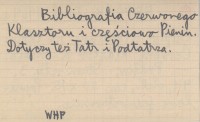 Bibliografia Czerwonego
Klasztoru i częściowo Pienin.
Dotyczy też Tatr i Podtatrza.
WHP